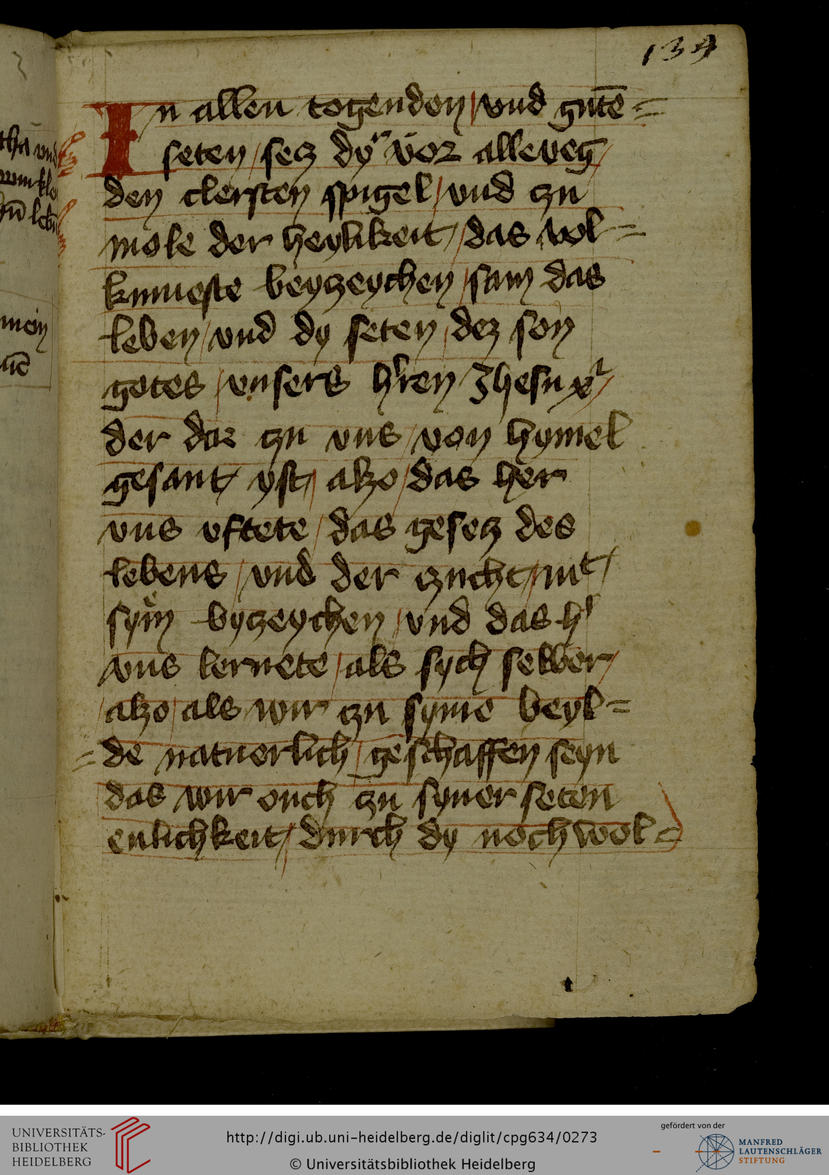 134
In allen togenden vnd gutē =
seten secz dyr vor alleveg
den clersten spigel vnd czu
mole der heylikeit das vol =
kumeste beyczeychen sam das
leben vnd dy seten dez son
gotes vnsers hren Jhesu xr
der dar czu vns von hymel
gesant yst alzo das her
vns vftete das gesecz des
lebens vnd der czucht mit
sym byczeychen vnd das hr
vns lernete als sych selber
alzo als wir czu syme beyl =
= de natuerlich geschaffen seyn
das wir ouch czu syner seten
enlichkeit durch dy nochvol =
tha vnd
winkle
lebn
mein
UNIVERSITÄTS-
BIBLIOTHEK
HEIDELBERG
http://digi.ub.uni-heidelberg.de/diglit/cpg634/0273
© Universitätsbibliothek Heidelberg
gefördert von der
MANFRED
LAUTENSCHLÄGER
STIFTUNG